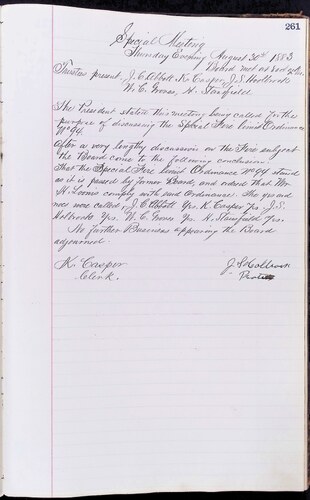 261
Special Meeting
Thursday Evening August 30th 1883
Board met at 8 o'clock
Trustees present, J. C. Abbott K. Casper, J. S. Holbrook
W. C. Groves, H. Stanfield.
The President stated this meeting being called for the
purpose of discussing the Special Fire limit Ordinance
No 94.
After a very lengthy discussion on the Fire subject
the Board come to the following conclusion.
That the Special Fire limit Ordinance No 94 stand
as it is passed by former Board, and asked that Mr
H. comply with said Ordinance. The yeas and
noes was called, J. C. Abbott Yes. K. Casper Yes, J. S.
Holbrook Yes. W. C. Groves Yes H. Stanfield Yes.
No further Business appearing the Board
adjourned.
K. Casper J. S. Holbrook
Clerk.